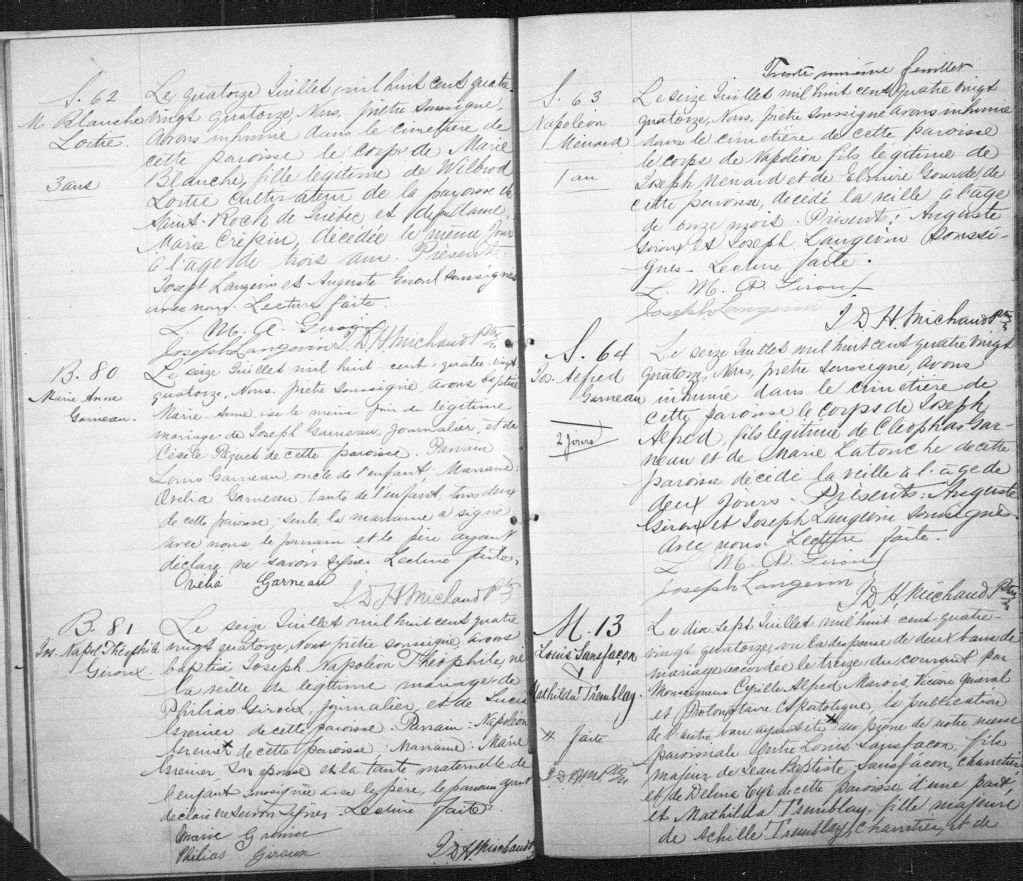 S. 62
M. Blanche
Loitre.
3 ans
Le quatorze Juillet, mil huit cent quatre
vingt quatorze, Nous, prêtre soussigné,
avons inhumé dans le cimetière de
cette paroisse le corps de Marie
Blanche, fille légitime de Wilbrod
Loitre cultivateur de la paroisse de
Saint-Roch de Québec et défunt Dame
Marie Crépin, décédée le même jour
à l'age de trois ans. Présents:
Joseph Langevin et Auguste Giroux soussignés
avec nous. Lecture faite.
L. M. A. Giroux
Joseph Langevin J D H Michaud Ptre
B. 80
Marie Anne
Garneau.
Le seize Juillet mil huit-cent-quatre vingt
quatorze, Nous, prêtre soussigné, avons baptisé
Marie Anne née le même jour du légitime
mariage de Joseph Garneau, journalier, et de
Cécile Paquet de cette paroisse. Parrain
Louis Garneau, oncle de l'enfant, Marraine:
Ovelia Garneau tante de l'enfant, tous deux
de cette paroisse; seule, la marraine a signé
avec nous, le parrain et le père ayant
déclaré ne savoir signer. Lecture faite.
Ovelia Garneau
J D H Michaud Ptre
B. 81
Jos. Napol. Théophile
Giroux.
Le seize Juillet mil huit cent quatre
vingt quatorze, Nous prêtre soussigné avons
baptisé Joseph Napoléon Théophile, né
la veille du légitime mariage de
Philias Giroux, journalier, et de Lucie
Grenier de cette paroisse. Parrain: Napoléon
Grenier × de cette paroisse: Marraine: Marie
Grenier, son epouse et la tante maternelle de
l'enfant soussignée avec le père, le parrain ayant
déclaré ne savoir signer. Lecture faite
Marie Grenier
Philias Giroux J D H Michaud
Trente unième feuillet
S. 63
Napoléon
Ménard
1 an
Le seize Juillet mil huit cent quatre vingt
quatorze, Nous, prêtre soussigné avons inhumé
dans le cimetière de cette paroisse
le corps de Napoléon fils légitime de
Joseph Ménard et de Elmire Gourde, de
cette paroisse, décédé la veille à l'age
de onze mois. Présents: Auguste
Giroux et Joseph Langevin soussi-
gnés. Lecture faite.
L. M. A. Giroux
Joseph Langevin
J D H Michaud Ptre
S. 64
Jos. Alfred
Garneau
2 jours
Le seize Juillet mil huit cent quatre vingt
quatorze, Nous, prêtre soussigné, avons
inhumé dans le cimetière de
cette paroisse le corps de Joseph
Alfred, fils légitime de Cléophas Gar-
neau et de Marie Latouche de cette
paroisse décédé la veille à l'age de
deux jours. Présents: Auguste
Giroux et Joseph Langevin soussignés
avec nous. Lecture faite.
L. M. A. Giroux
Joseph Langevin
J D H Michaud Ptre
M. 13
Louis Sansfaçon
Mathilda Tremblay
× faite
J D H M Ptre
Le dix sept Juillet mil huit cent-quatre-
vingt quatorze, vu la dispense de deux bans de
mariage accordée le treize du courant par
Monseigneur Cyrille Alfred Marois, Vicaire général
et Protonotaire Apostolique, la publication
de l'autre ban ayant été × au prône de notre messe
paroissiale entre Louis Sansfaçon, fils
majeur de Jean Baptiste Sansfaçon, charretier
et de Delina Cyr de cette paroisse, d'une part
et Mathilda Tremblay, fille majeure
de Achille Tremblay, charretier, et de